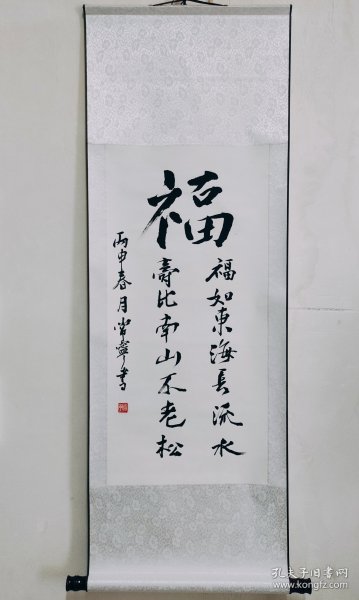 福
福如東海長流水
壽比南山不老松
丙申春月雷寧書
孔夫子旧书网
www.kongfz.com